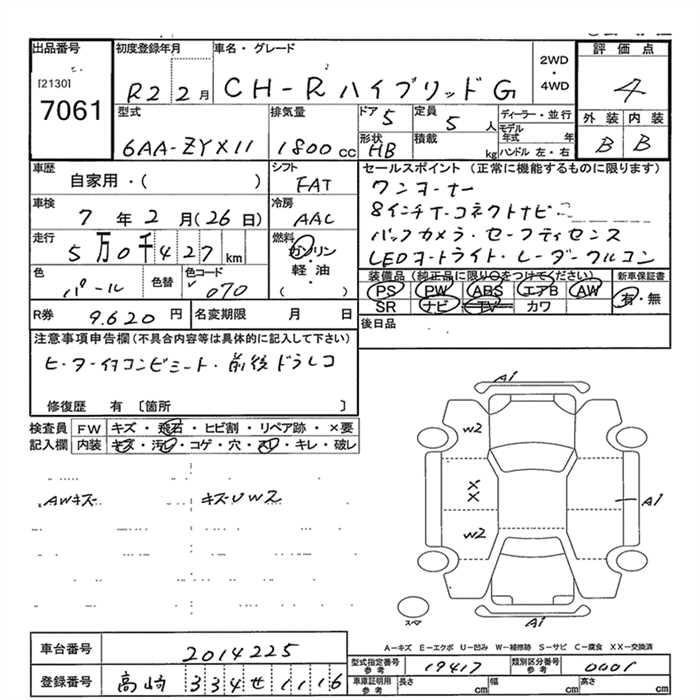 出品番号
[2130]
7061
初度登録年月
R2 2月
車名・グレード
CH-R ハイブリッド G
2WD
・
4WD
評価点
4
外装 内装
B B
型式
6AA-ZYX11
排気量
1800 cc
ドア 5
定員 5 人
形状 HB
積載 kg
ディーラー・並行
モデル年式 年
ハンドル 左・右
車歴
自家用・( )
シフト
FAT
車検
7年2月(26日)
冷房
AAC
走行
5万0千427km
燃料
ガソリン
・
軽・油
( )
色
パール
色替
色コード
070
R券 9.620円
名変期限 月 日
セールスポイント(正常に機能するものに限ります)
ワンオーナー
8インチT-コネクトナビ
バックカメラ・セーフティセンス
LEDオートライト・レーダークルコン
装備品(純正品に限り○をつけてください)
新車保証書
PS PW ABS エアB AW
有・無
SR ナビ TV カワ
後日品
注意事項申告欄(不具合内容等は具体的に記入して下さい)
ヒーター付コンビシート・前後ドラレコ
修復歴 有 〔箇所 〕
検査員 FW キズ・飛石・ヒビ割・リペア跡・×要
記入欄 内装 キズ・汚レ・コゲ・穴・スレ・キレ・破レ
AWキズ
キズUW2
A1
W2
X
X
W2
A1
A1
スペア
A-キズ E-エクボ U-凹み W-補修跡 S-サビ C-腐食 XX-交換済
車台番号 2014225
登録番号 高崎 334せ1116
型式指定番号
参考
19417
類別区分番号
参考
0001
車庫証明用
参考
長さ cm
幅 cm
高さ cm